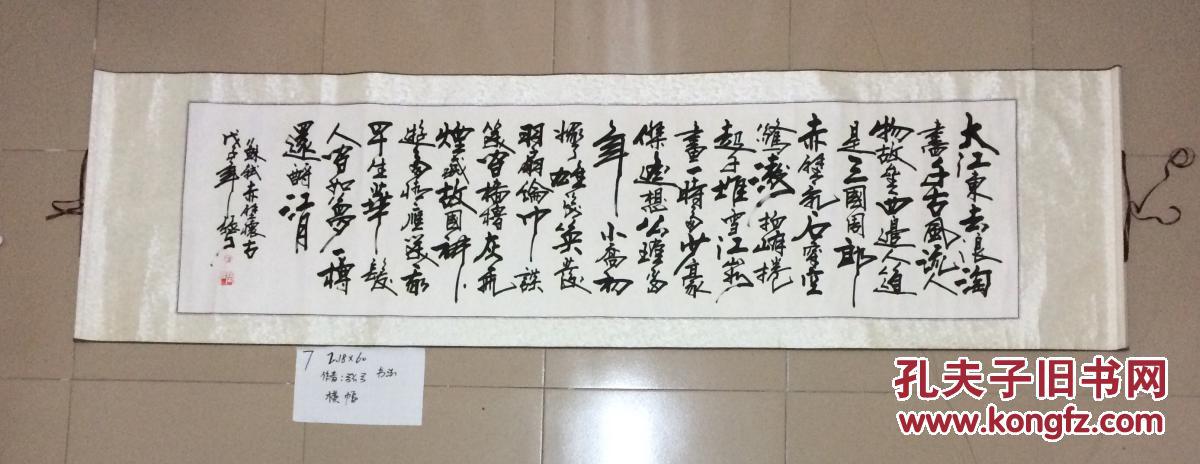 大江東去浪淘
盡千古風流人
物故壘西邊人道
是三國周郎
赤壁乱石穿空
拍岸捲
起千堆雪江山如
畫一時多少豪
傑遙想公瑾當
年小喬初
嫁了雄姿英發
羽扇綸巾談
笑間檣櫓灰飛
煙滅故國神
遊多情應笑我
早生華髮
人間如夢一樽
還酹江月
蘇軾赤壁懷古
戊子年
7 2.18×60
作者: 书法
横幅
孔夫子旧书网
www.kongfz.com